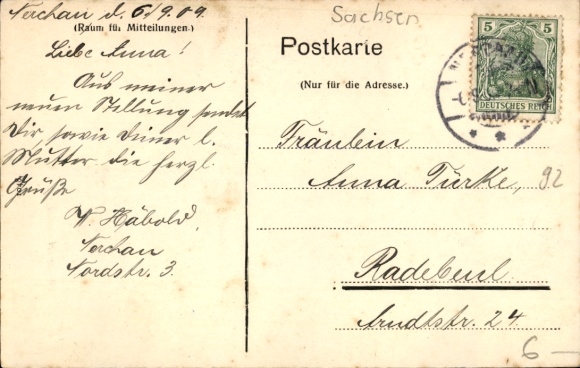 Nerchau d. 6/9.09.
(Raum für Mitteilungen.)
Liebe Anna!
Aus meiner
neuen Stellung sendet
Dir sowie Deiner l.
Mutter die herzl.
Grüße
W. Häbold,
Nerchau
Nordstr. 3.
Sachsen
Postkarte
(Nur für die Adresse.)
5 5
DEUTSCHES REICH
Fräulein
Anna Türke,
92
Radebeul
Arndtstr. 24
6 –